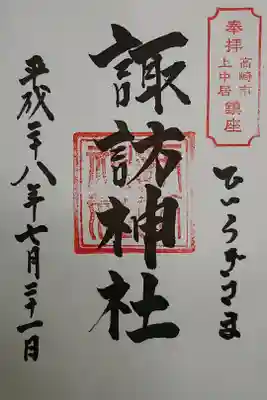 奉拝
高崎市
上中居
鎮座
ひいらぎさま
諏訪神社
平成二十八年七月三十一日